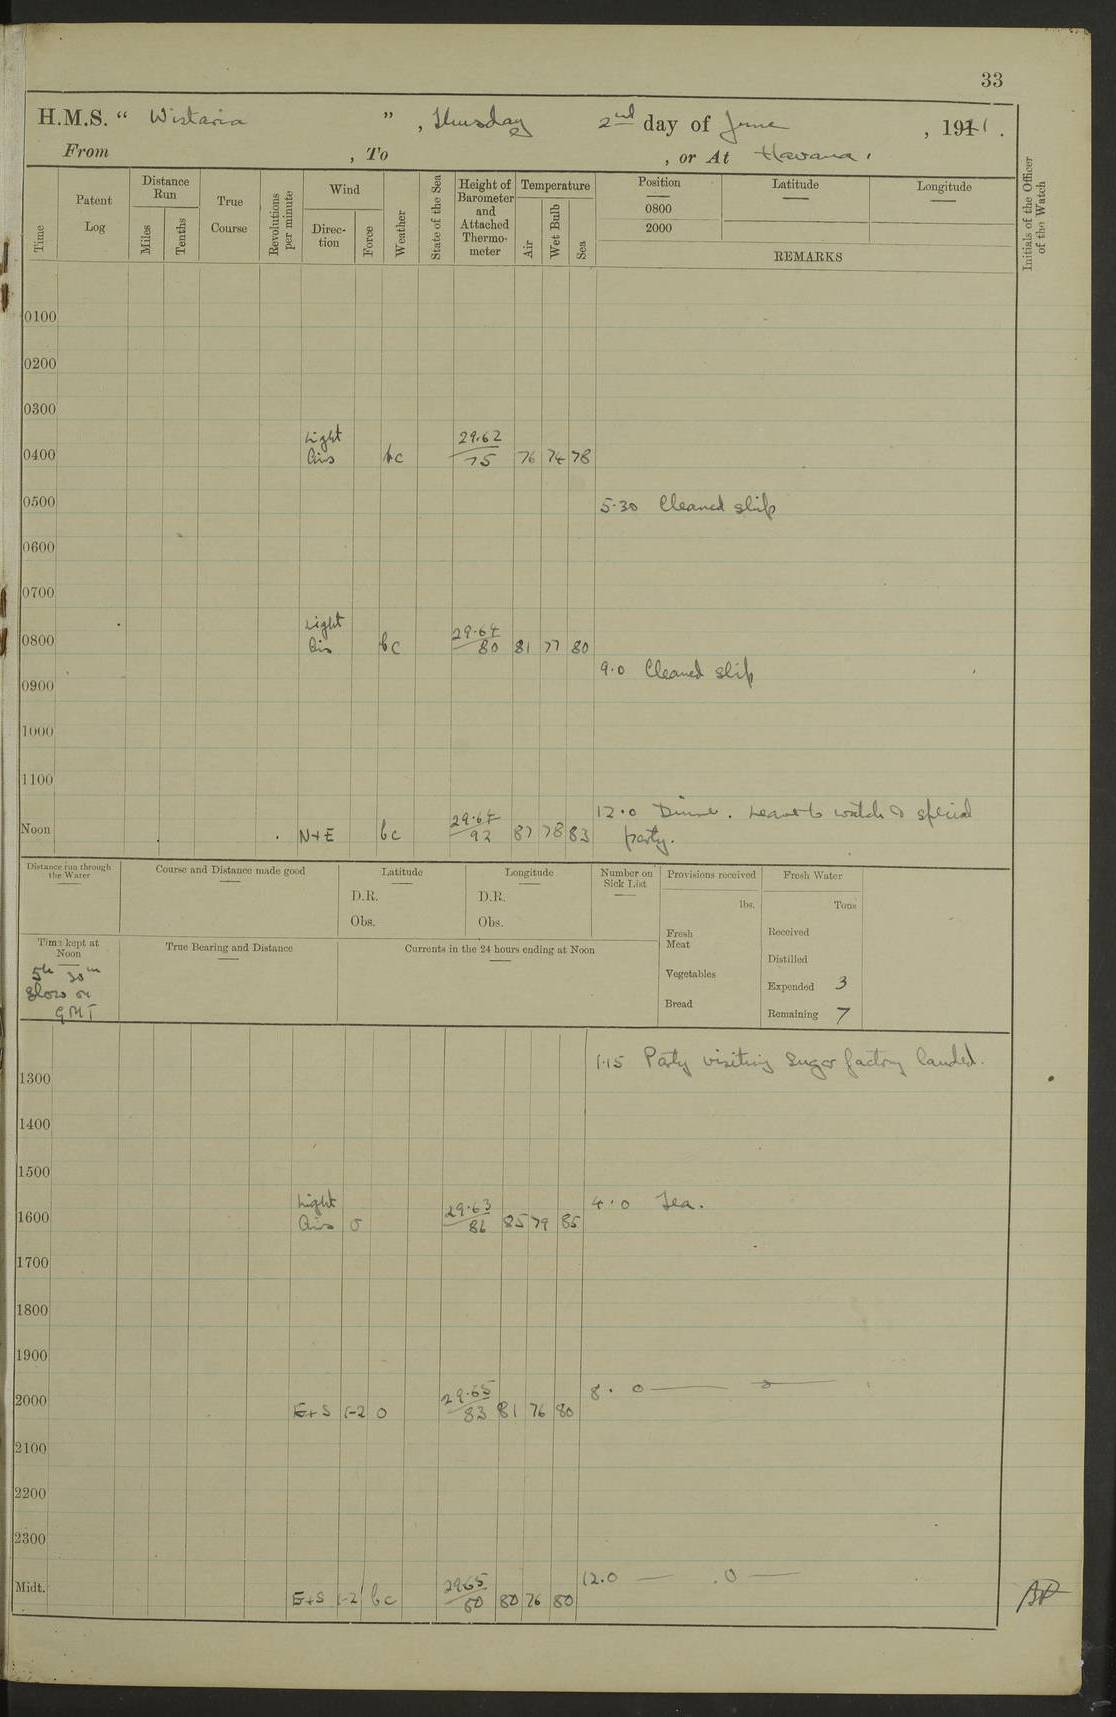 33
H.M.S. “ Wistaria ” , Thursday 2nd day of June , 1921.
From , To , or At Havana.
Time
Patent Log
Distance Run
Miles
Tenths
True Course
Revolutions per minute
Wind
Direc-tion
Force
Weather
State of the Sea
Height of Barometer and Attached Thermo-meter
Temperature
Air
Wet Bulb
Sea
Position
0800
2000
Latitude
Longitude
REMARKS
Initials of the Officer of the Watch
0100
0200
0300
Light 29.62
0400 Airs bc 75 76 74 78
0500 5.30 Cleaned ship
0600
0700
Light 29.64
0800 Airs bc 80 81 77 80
9.0 Cleaned ship
0900
1000
1100
29.67 12.0 Dinner. Leave to watch & special
Noon N+E bc 92 87 78 83 party.
Distance run through the Water
Course and Distance made good
Latitude
D.R.
Obs.
Longitude
D.R.
Obs.
Number on Sick List
Provisions received
lbs.
Fresh Meat
Vegetables
Bread
Fresh Water
Tons
Received
Distilled
Expended 3
Remaining 7
Time kept at Noon
5h 30m
slow on
GMT
True Bearing and Distance
Currents in the 24 hours ending at Noon
1.15 Party visiting Sugar factory landed.
1300
1400
1500
Light 29.63 4.0 Tea.
1600 Airs 86 85 79 85
1700
1800
1900
29.65 8.0
2000 E+S 1-2 o 83 81 76 80
2100
2200
2300
29.65 12.0
Midt. E+S 1-2 bc 80 80 76 80